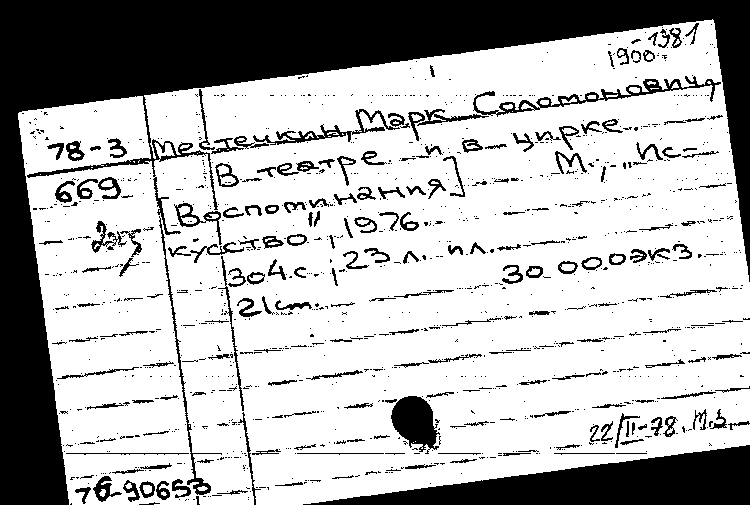 1900-1981
78-3 Местечкин, Марк Соломонович,
669 В театре и в цирке.
[Воспоминания] М., „Ис-
кусство", 1976.
304 с.; 23 л. ил.
21 cm. 30 000 экз.
22/II-78. М.З.
76-90653